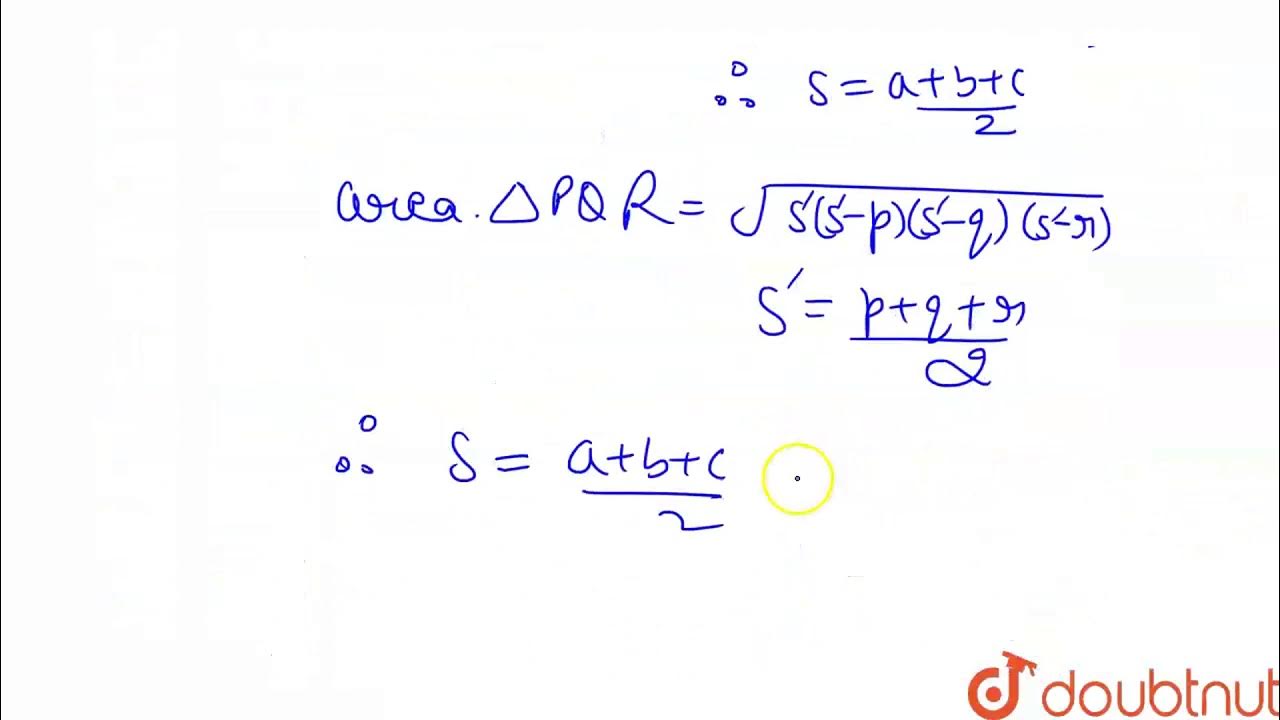 ∴ s = a+b+c
2
area. △PQR = √s'(s'-p)(s'-q)(s'-r)
s' = p+q+r
2
∴ s = a+b+c
2
doubtnut